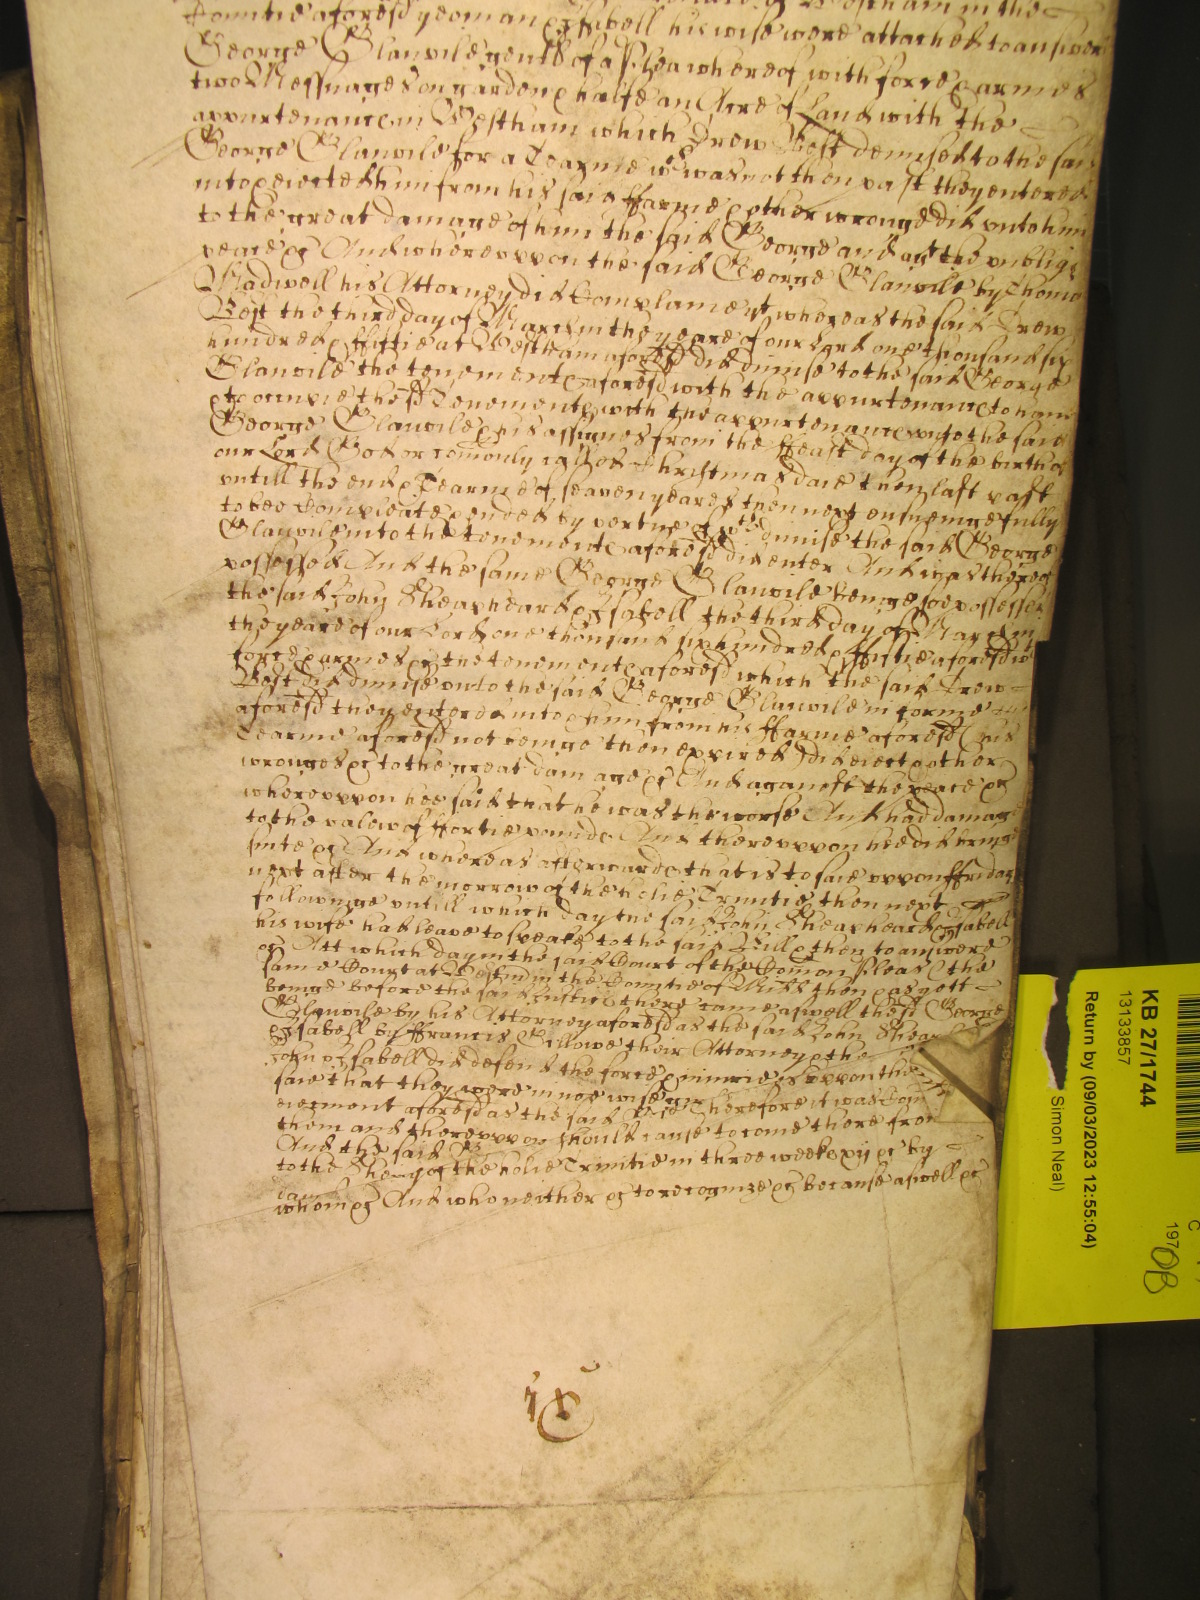 Countie aforesd yeoman & Isabell his wife were attached to answere
George Glanvile gent of a Plea wherefore with force & armes
two Messuages on garden & halfe an Acre of Land with the
appurtenance in Westham which Drew Best demised to the said
George Glanvile for a Tearme wch was not then past they entered
into & eiected him from his said ffarme & other wronge did unto him
to the great damage of him the said George and agt the publiqe
peace &c And whereuppon the said George Glanvile by Thomas
Madwell his Attorney did Complaine yt whereas the said Drew
Best the third day of March in the yeare of our Lord one thousand six
hundred & ffiftie at Westham aforesd did dimise to the said George
Glanvile the tenemente aforesd with the appurtenance to have
& to occupie the sd Tenemente with the appurtenance unto the said
George Glanvile & his assignes from the ffeast day of the birth of
our Lord God or comonly called Christmas daie then last past
untill the end & Tearme of seaven yeares then next ensueinge fully
to bee Compleate & ended by vertue of wch dimise the said George
Glanvile into the tenemente aforesd did enter And was thereof
possessed And the same George Glanvile beinge soe possessed
the said John Sheapheard & Isabell the third day of March in
the yeare of our Lord one thousand six hundred & ffiftie aforesd wth
force & armes &c the tenemente aforesd which the said Drew
Best did dimise unto the said George Glanvile in forme
aforesd they entered into & him from his ffarme aforesd (his
Tearme aforesd not beinge then expired) did eiect & other
wronges &c to the great damage &c And against the peace &c
whereuppon hee said that he was the worse And had damage
to the valew of ffortie pounde And thereuppon hee did bringe
suite &c And whereas afterwarde that is to saie uppon ffriday
next after the morrow of the holie Trinitie then next
followinge untill which day the said John Sheapheard & Isabell
his wife had leave to speake to the said Bill & then to answere
&c Att which day in the said Court of the Comon Pleas (the
same Court at Westmr in the Countie of Midd then & as yett
beinge before the said Justice there came aswell the sd George
Glanvile by his Attorney aforesd as the said John Shea
& Isabell by ffrancis Gillowe their Attorney & the
John & Isabell did defend the force & iniurie &c uppon the
saie that they were in noe wise
eiectment aforesd as the said Therefore it was Com
them and thereuppon should cause to come there from
And the said
to the of the holie Trinitie in three weeke xij &c by
whom &c And who neither &c to recognize &c because aswell &c
KB 27/1744
13133857
Return by (09/03/2023 12:55:04)
Simon Neal)
197